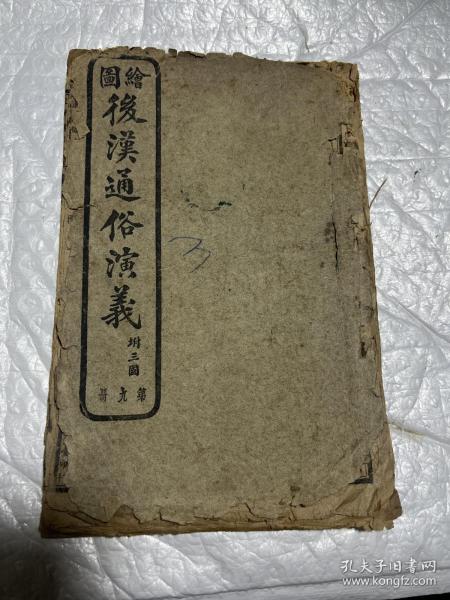 繪圖
後漢通俗演義
坿三國
第九册
孔夫子旧书网
www.kongfz.com